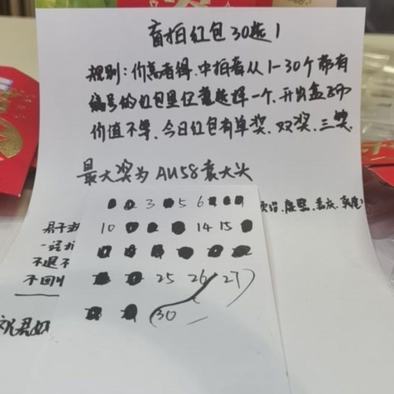 盲拍红包30选1
规则：价高者得.中拍者从1-30个带有
编号的红包里任意选择一个.开出盒子
价值不等.今日红包有单奖.双奖.三奖.
最大奖为AU58袁大头
3 5 6
君子 10 14 15
一诺
不退不 25 26 27
不回
30
祝君